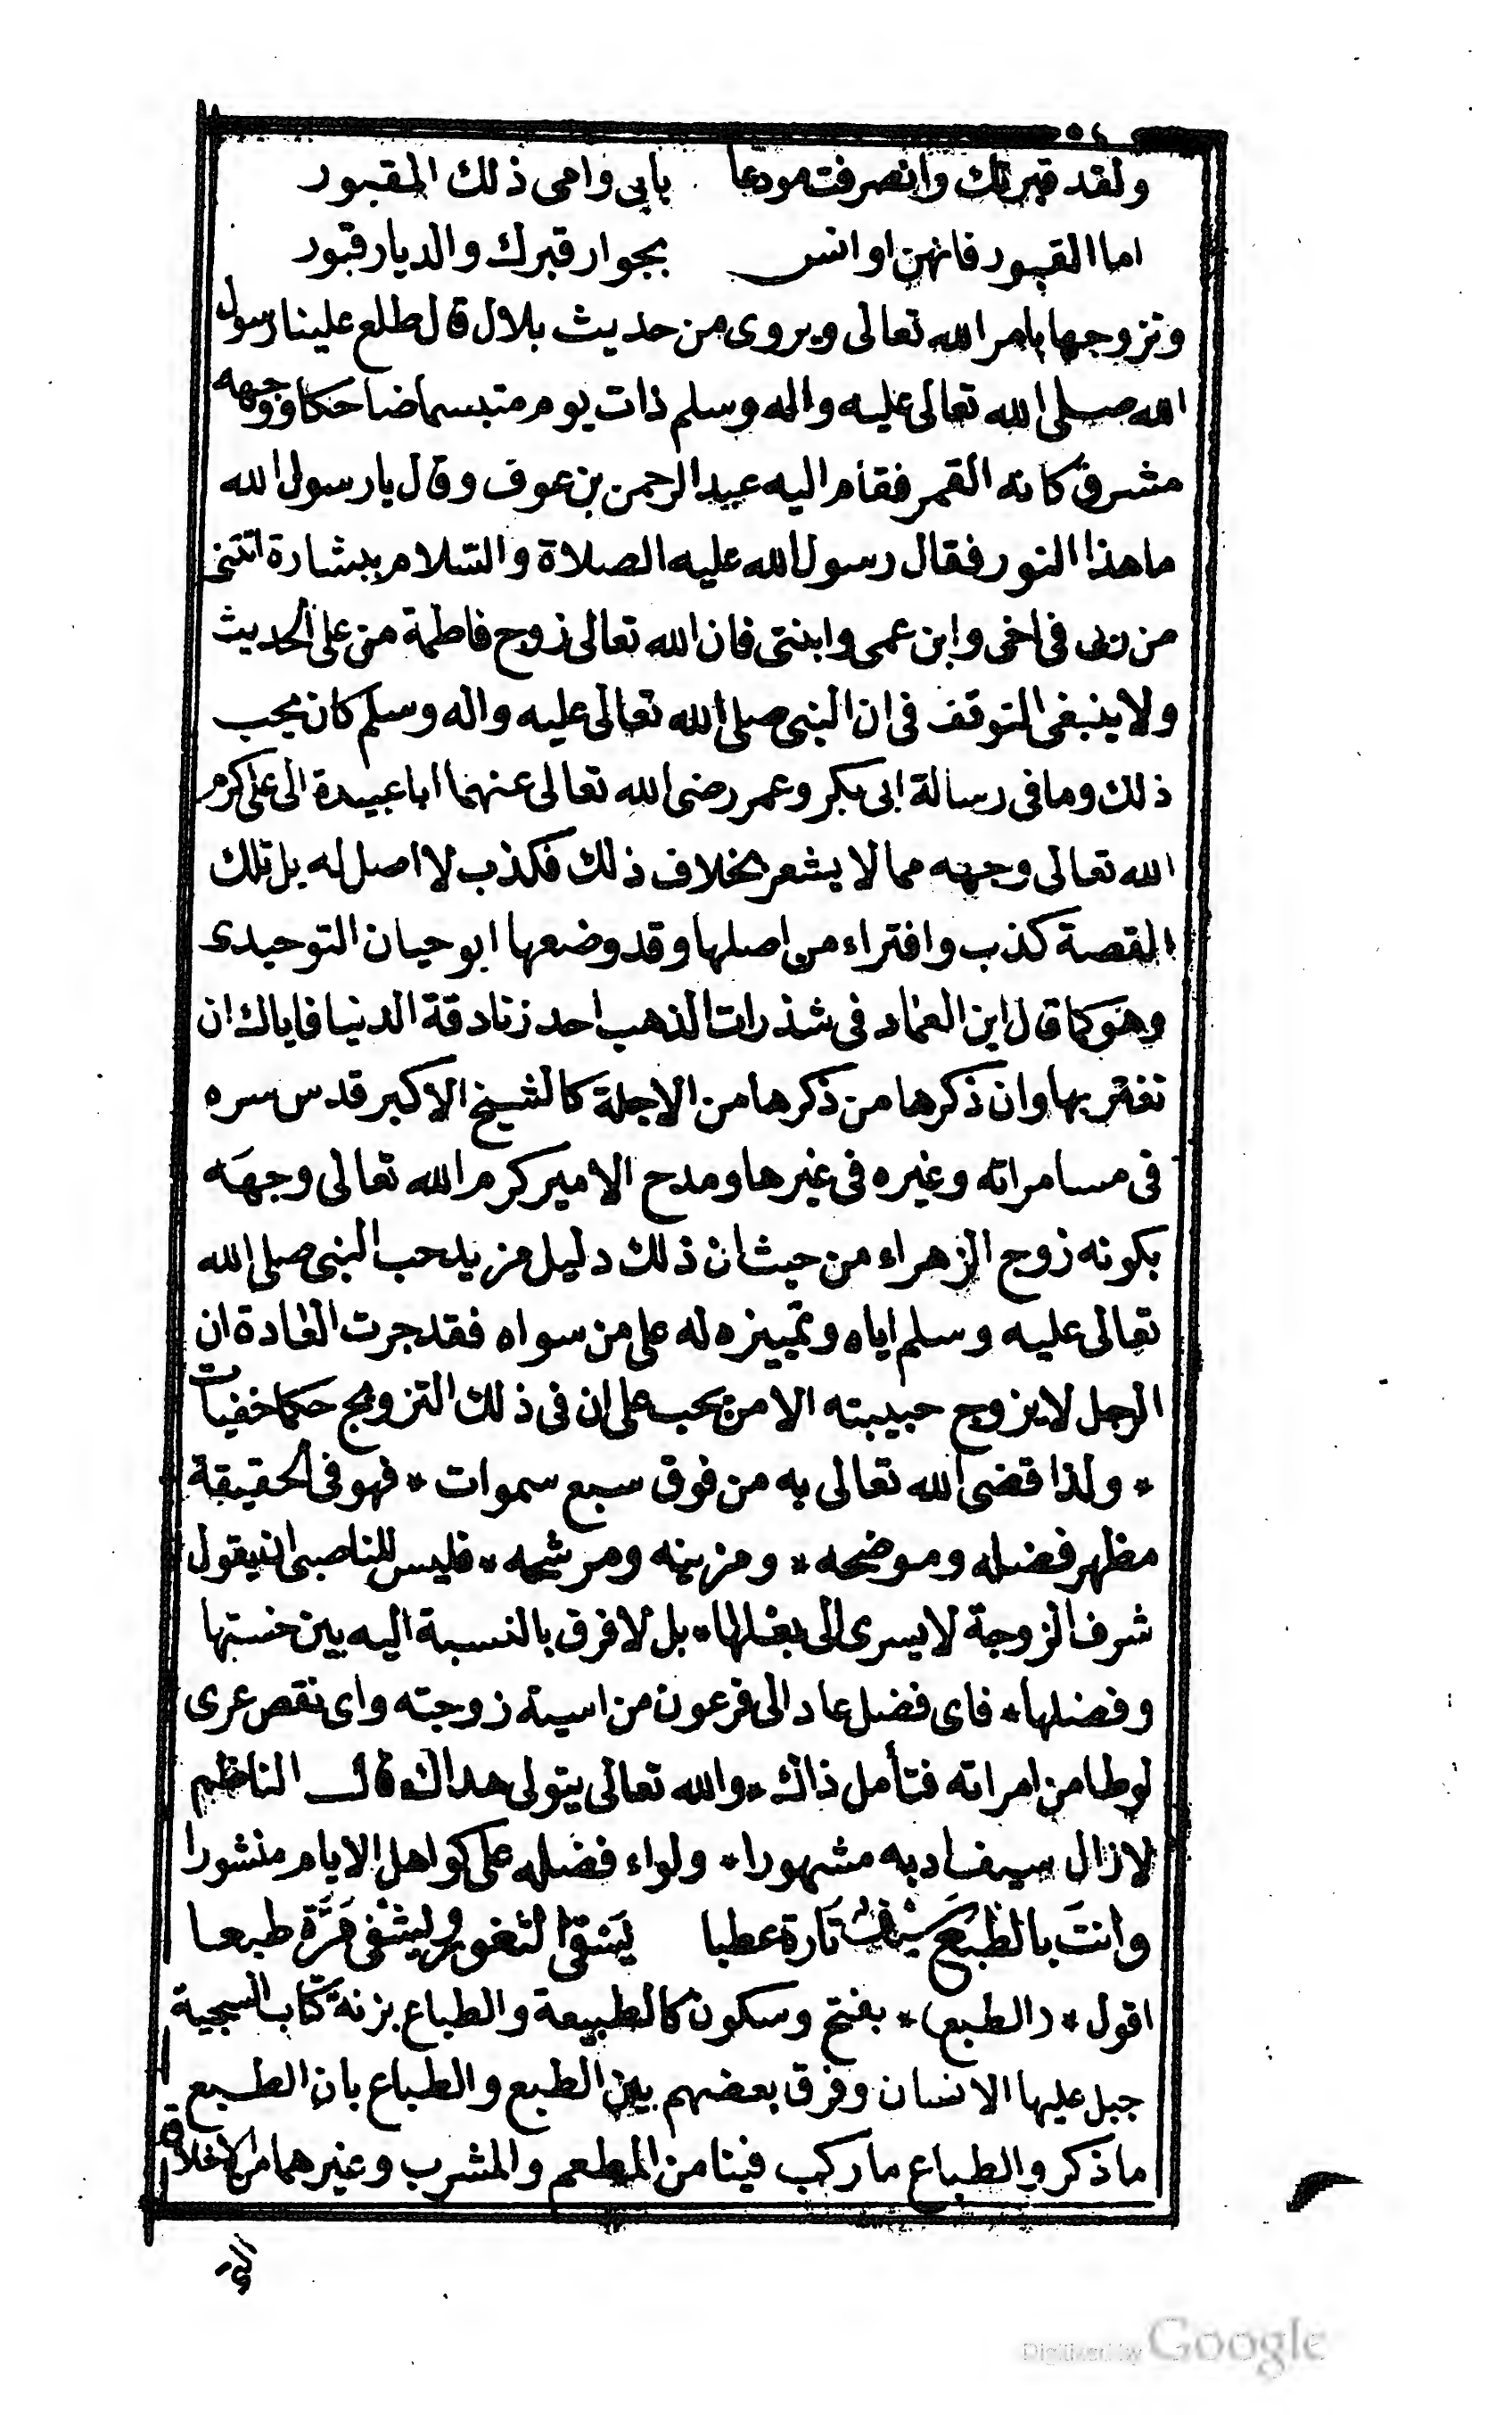 ٥٤
ولقد قبرتك وانصرفت مودعا بابى وامى ذلك المقبور
اما القبور فانهن اوانس بجوار قبرك والديار قبور
وتزوجها بامر الله تعالى ويروى من حديث بلال قال طلع علينا رسول
الله صلى الله تعالى عليه واله وسلم ذات يوم متبسما ضاحكا ووجهه
مشرق كانه القمر فقام اليه عبد الرحمن بن عوف وقال يا رسول الله
ما هذا النور فقال رسول الله عليه الصلاة والسلام بشارة اتتنى
من ربى فى اخى وابن عمى وابنتى فان الله تعالى زوج فاطمة من على الحديث
ولا ينبغى التوقف فى ان النبى صلى الله تعالى عليه واله وسلم كان يحب
ذلك وما فى رسالة ابى بكر وعمر رضى الله تعالى عنهما ابا عبيدة الى على كرم
الله تعالى وجهه مما لا يشعر بخلاف ذلك فكذب لا اصل له بل تلك
القصة كذب وافتراء من اصلها وقد وضعها ابو حيان التوحيدى
وهو كما قال ابن العماد فى شذرات الذهب احد زنادقة الدنيا فاياك ان
تغتر بها وان ذكرها من ذكرها من الاجلة كالشيخ الاكبر قدس سره
فى مسامراته وغيره فى غيرها ومدح الامير كرم الله تعالى وجهه
بكونه زوج الزهراء من حيث ان ذلك دليل مزيد حب النبى صلى الله
تعالى عليه وسلم اياه وتمييزه له على من سواه فقد جرت العادة ان
الرجل لا يزوج حبيبته الا من يحب على ان فى ذلك التزويج حكما خفيات
* ولذا قضى الله تعالى به من فوق سبع سموات * فهو فى الحقيقة
مظهر فضله وموضحه * ومزينه ومرشحه * فليس للناصبى ان يقول
شرف الزوجة لا يسرى الى بعلها * بل لا فرق بالنسبة اليه بين خستها
وفضلها * فاى فضل عاد الى فرعون من اسية زوجته واى نقص عرى
لوطا من امراته فتأمل ذاك * والله تعالى يتولى هداك قال الناظم
لازال سيف ادبه مشهورا * ولواء فضله على كواهل الايام منشورا
وانتَ بالطبع سيف تارة عطبا يسقى الثغور ويشفى مَرَّة طبعا
اقول * (الطبع) * بفتح وسكون كالطبيعة والطباع بزنة كتاب السجية
جبل عليها الانسان وفرق بعضهم بين الطبع والطباع بان الطبع
ما ذكر والطباع ما ركب فينا من المطعم والمشرب وغيرهما من الاخلاق
التى
Digitized by Google